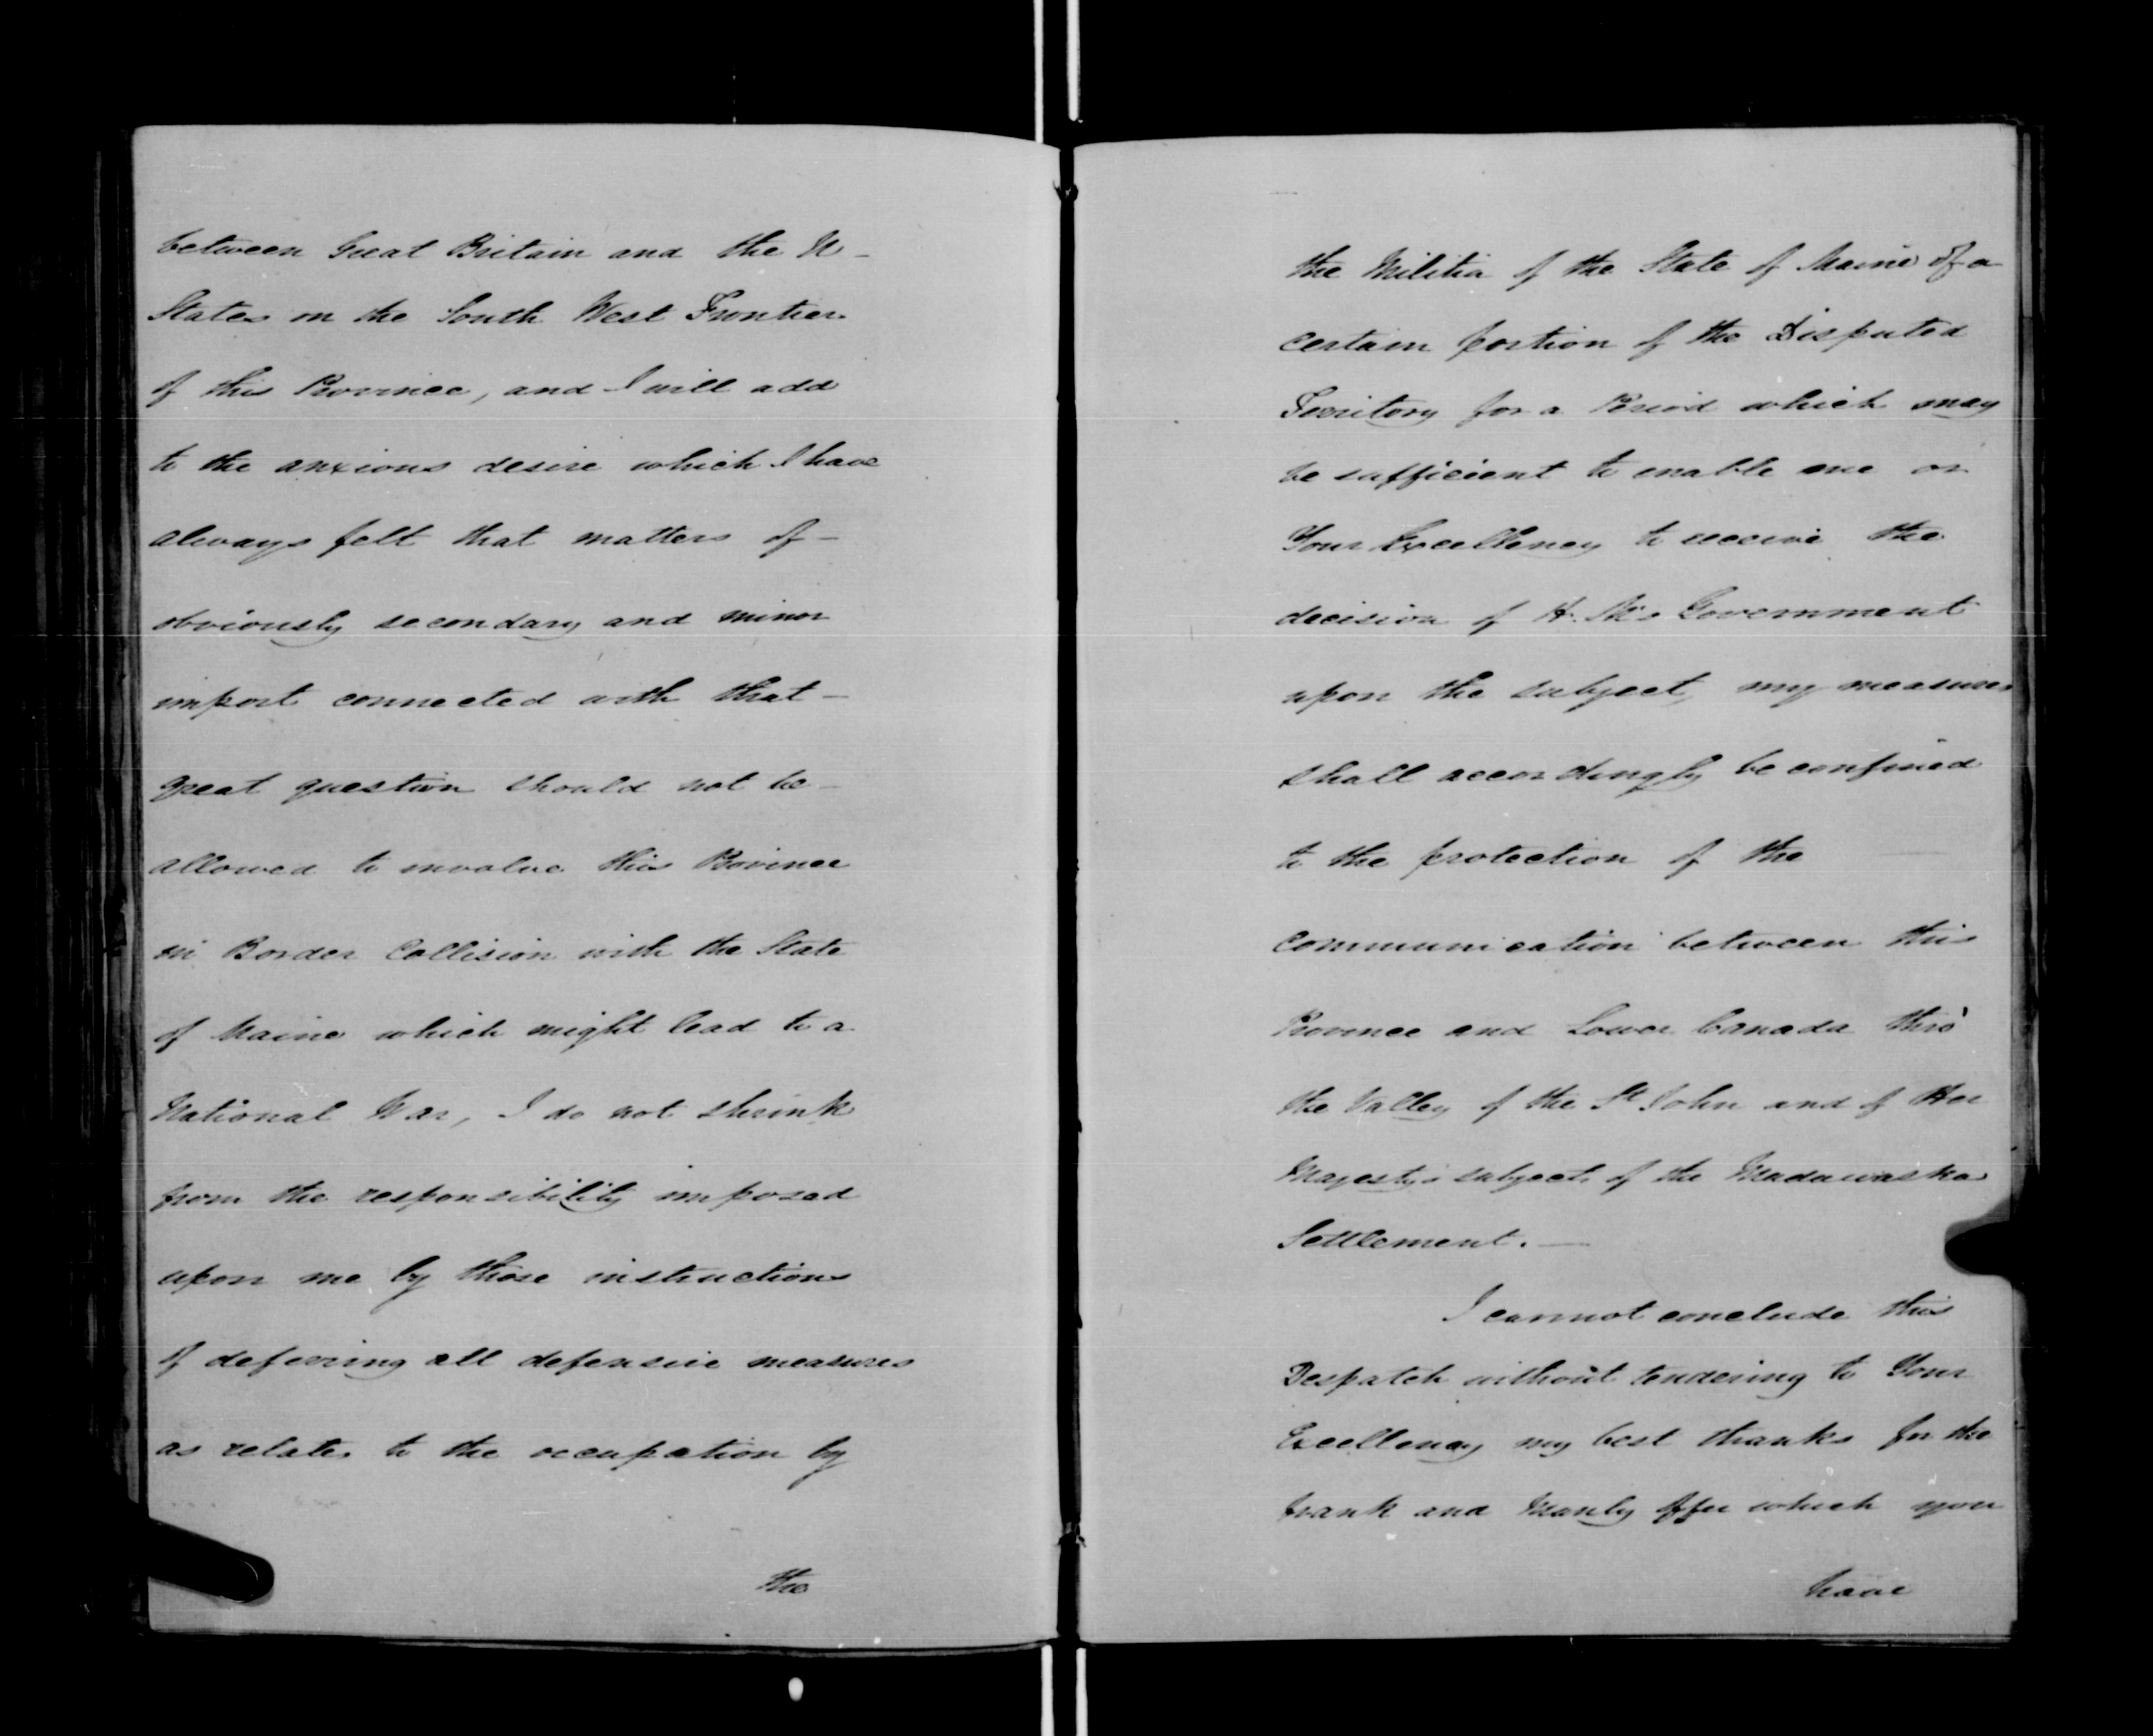 between Great Britain and the U-
States on the South West Frontier
of this Province, and I will add
to the anxious desire which I have
always felt that matters of-
obviously secondary and minor
import connected with that-
great question should not be-
allowed to involve this Province
in Border Collision with the State
of Maine which might lead to a
National War, I do not shrink
from the responsibility imposed
upon me by those instructions
of deferring all defensive measures
as relates to the occupation by
the
the Militia of the State of Maine of a
certain portion of the Disputed
Territory for a Period which may
be sufficient to enable me or
Your Excellency to receive the
decision of H. M's Government
upon the subject, my measures
shall accordingly be confined
to the protection of the
communication between this
Province and Lower Canada thro'
the Valley of the St John and of Her
Majesty's subjects of the Madawaska
Settlement.—
I cannot conclude this
Despatch without tendering to Your
Excellency my best thanks for the
frank and Manly offer which you
have